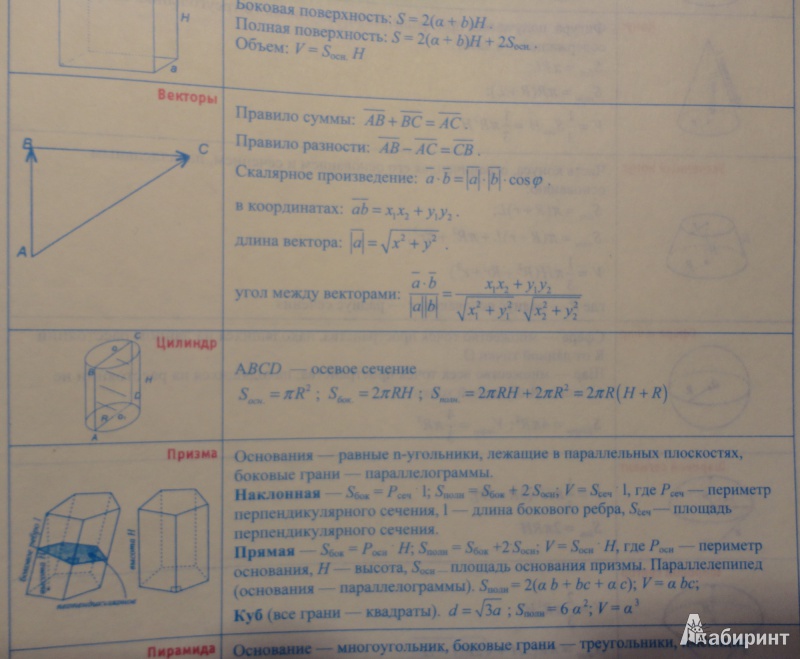 Боковая поверхность: S = 2(α + b)H.
Полная поверхность: S = 2(α + b)H + 2Sосн.
Объем: V = Sосн. H
H
a
Векторы
Правило суммы: AB + BC = AC.
Правило разности: AB − AC = CB.
Скалярное произведение: a · b = |a| · |b| · cos φ,
в координатах: ab = x₁x₂ + y₁y₂.
длина вектора: |a| = √(x² + y²).
угол между векторами: a · b / |a||b| = (x₁x₂ + y₁y₂) / (√(x₁² + y₁²) · √(x₂² + y₂²))
B
C
A
Цилиндр
ABCD — осевое сечение
Sосн. = πR² ; Sбок. = 2πRH ; Sполн. = 2πRH + 2πR² = 2πR(H + R)
C
B
H
D
R
A
Призма
Основания — равные n-угольники, лежащие в параллельных плоскостях,
боковые грани — параллелограммы.
Наклонная — Sбок = Pсеч · l; Sполн = Sбок + 2 Sосн; V = Sсеч · l, где Pсеч — периметр
перпендикулярного сечения, l — длина бокового ребра, Sсеч — площадь
перпендикулярного сечения.
Прямая — Sбок = Pосн · H; Sполн = Sбок +2 Sосн; V = Sосн · H, где Pосн — периметр
основания, H — высота, Sосн площадь основания призмы. Параллелепипед
(основания — параллелограммы). Sполн = 2(α b + bc + α c); V = α bc;
Куб (все грани — квадраты). d = √3a ; Sполн = 6 α²; V = α³
боковое ребро l
высота H
Пирамида
Основание — многоугольник, боковые грани — треугольники,
Лабиринт